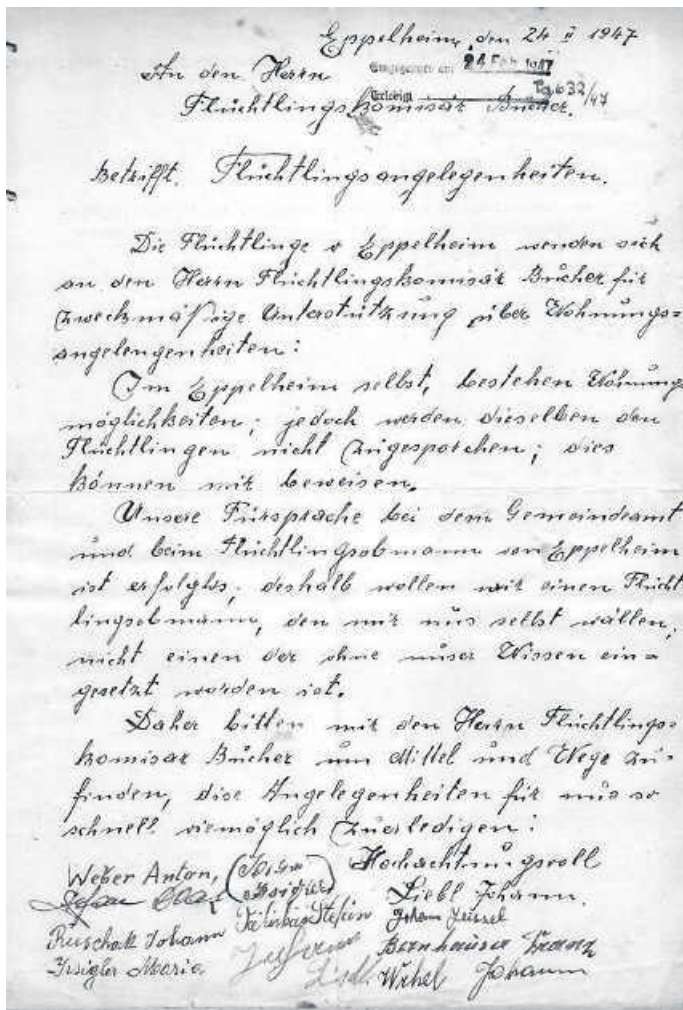 Eppelheim, den 24 II 1947
An den Herrn
Eingegangen am 24. Feb. 1947
Erledigt Tg. 632/47
Flüchtlingskomisär Bücher.
Betrifft. Flüchtlingsangelegenheiten.
Die Flüchtlinge v Eppelheim wenden sich
an den Herrn Flüchtlingskomisär Bücher für
zweckmäßige Unterstützung über Wohnungs=
angelengenheiten:
Im Eppelheim selbst, bestehen Wohnung
möglichkeiten; jedoch werden dieselben den
Flüchtlingen nicht zugesporchen; dies
können mir beweisen.
Unsere Fürsprache bei dem Gemeindeamt
und beim Flüchtlingsobmann von Eppelheim
ist erfolglos; deshalb wollen wir einen Flücht
lingsobmann, den mir uns selbst wällen;
nicht einen der ohne unser Wissen ein=
gesetzt worden ist.
Daher bitten mir den Herrn Flüchtlings=
komisar Bücher um Mittel und Wege zu=
finden, dise Angelegenheiten für uns so
schnell viemöglich zuerledigen:
Hochachtungsvoll
Weber Anton,
Liebl Johann.
Stefan
Johann
Ruschak Johann
Bernhauser Franz
Irsigler Maria
Johann